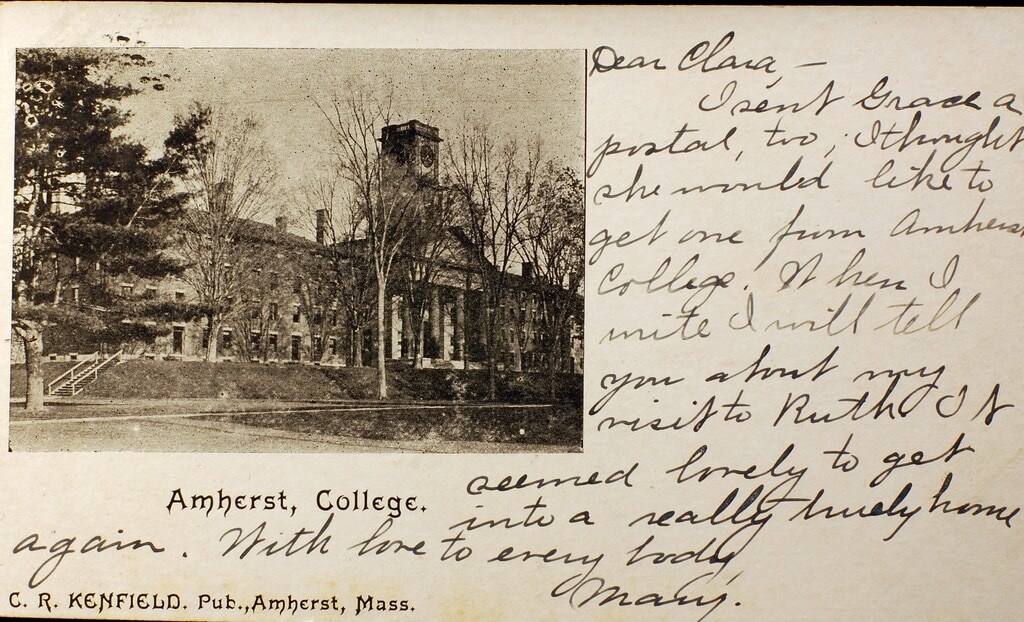 Dear Clara, —
I sent Grace a
postal, too; I thought
she would like to
get one from Amherst
College. When I
write I will tell
you about my
visit to Ruth. It
seemed lovely to get
into a really truely home
again. With love to every body
Mary.
Amherst, College.
C. R. KENFIELD. Pub., Amherst, Mass.